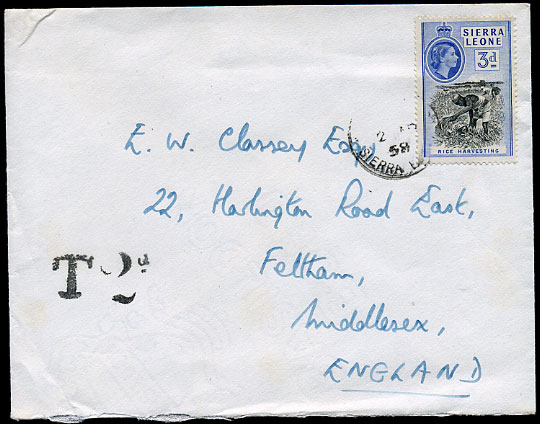 SIERRA
LEONE
3d
RICE HARVESTING
2
58
SIERRA
E. W. Classey Esq,
22, Harlington Road East,
Feltham,
Middlesex,
ENGLAND
T 2d